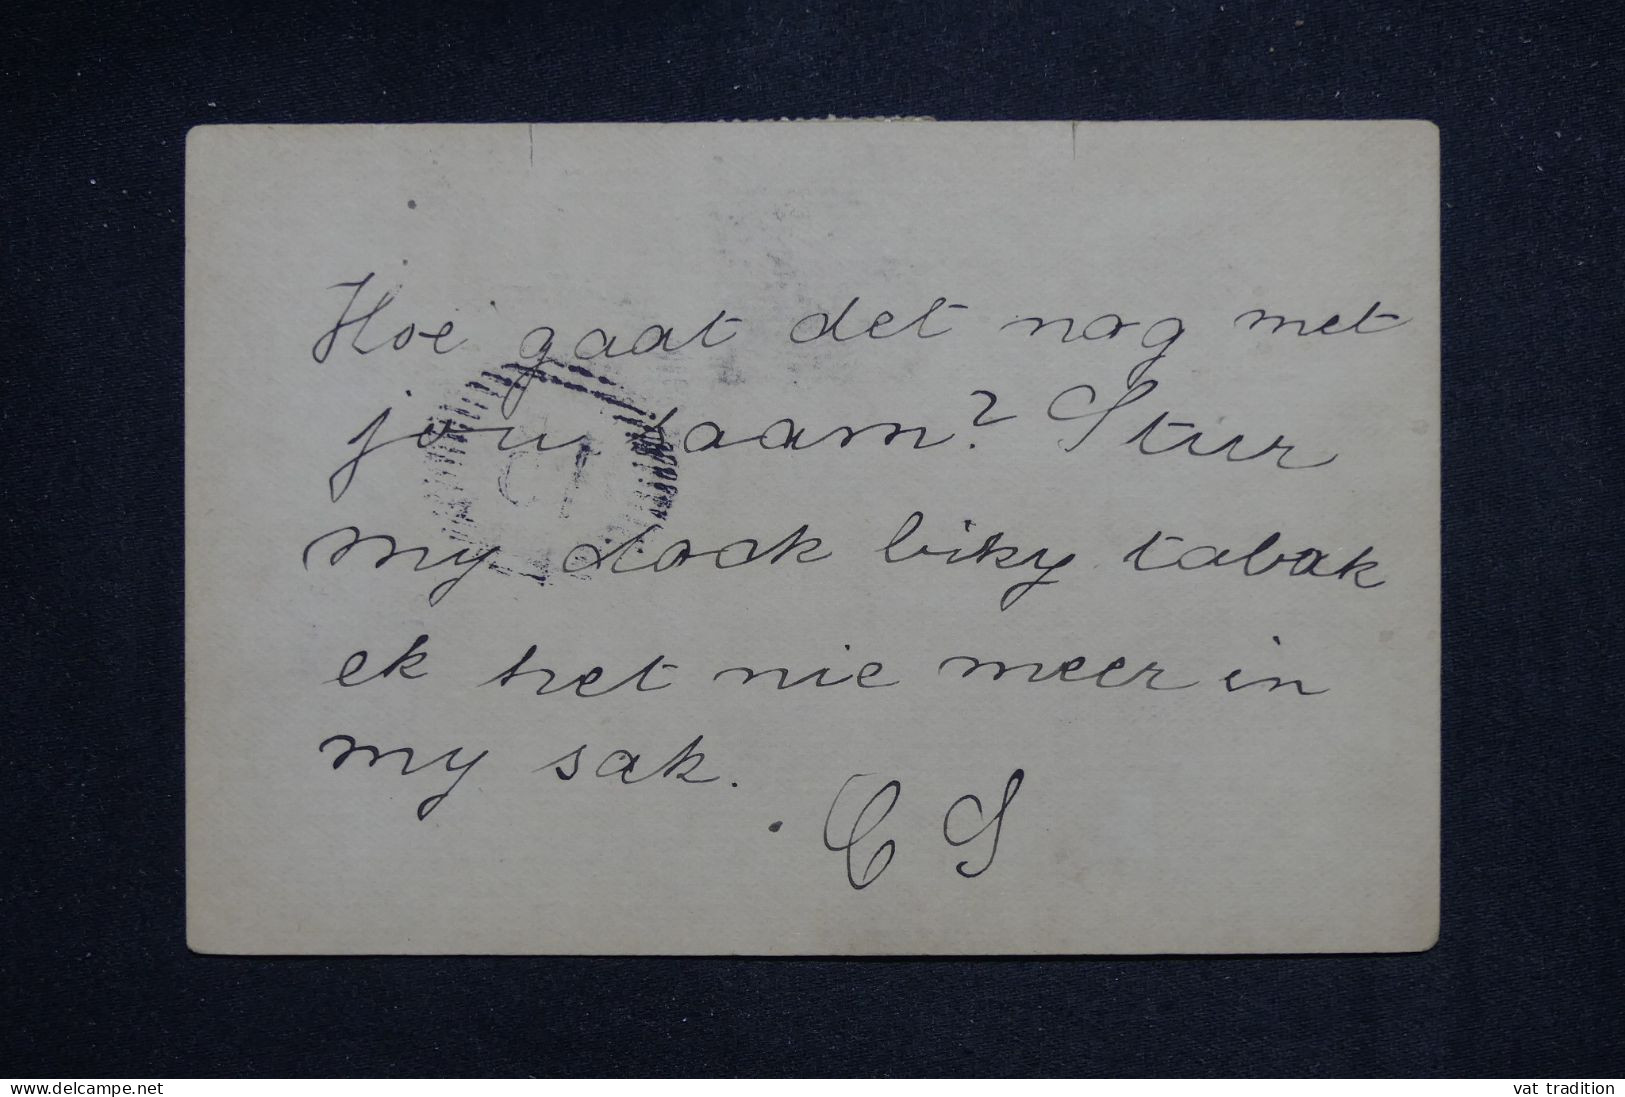 Hoe gaat det nog met
jou taam? Stur
my dock biky tabak
ek het nie meer in
my sak.
C S
delcampe.net
vat tradition